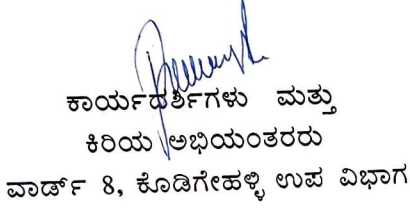 ಕಾರ್ಯದರ್ಶಿಗಳು ಮತ್ತು
ಕಿರಿಯ ಅಭಿಯಂತರರು
ವಾರ್ಡ್ 8, ಕೊಡಿಗೇಹಳ್ಳಿ ಉಪ ವಿಭಾಗ